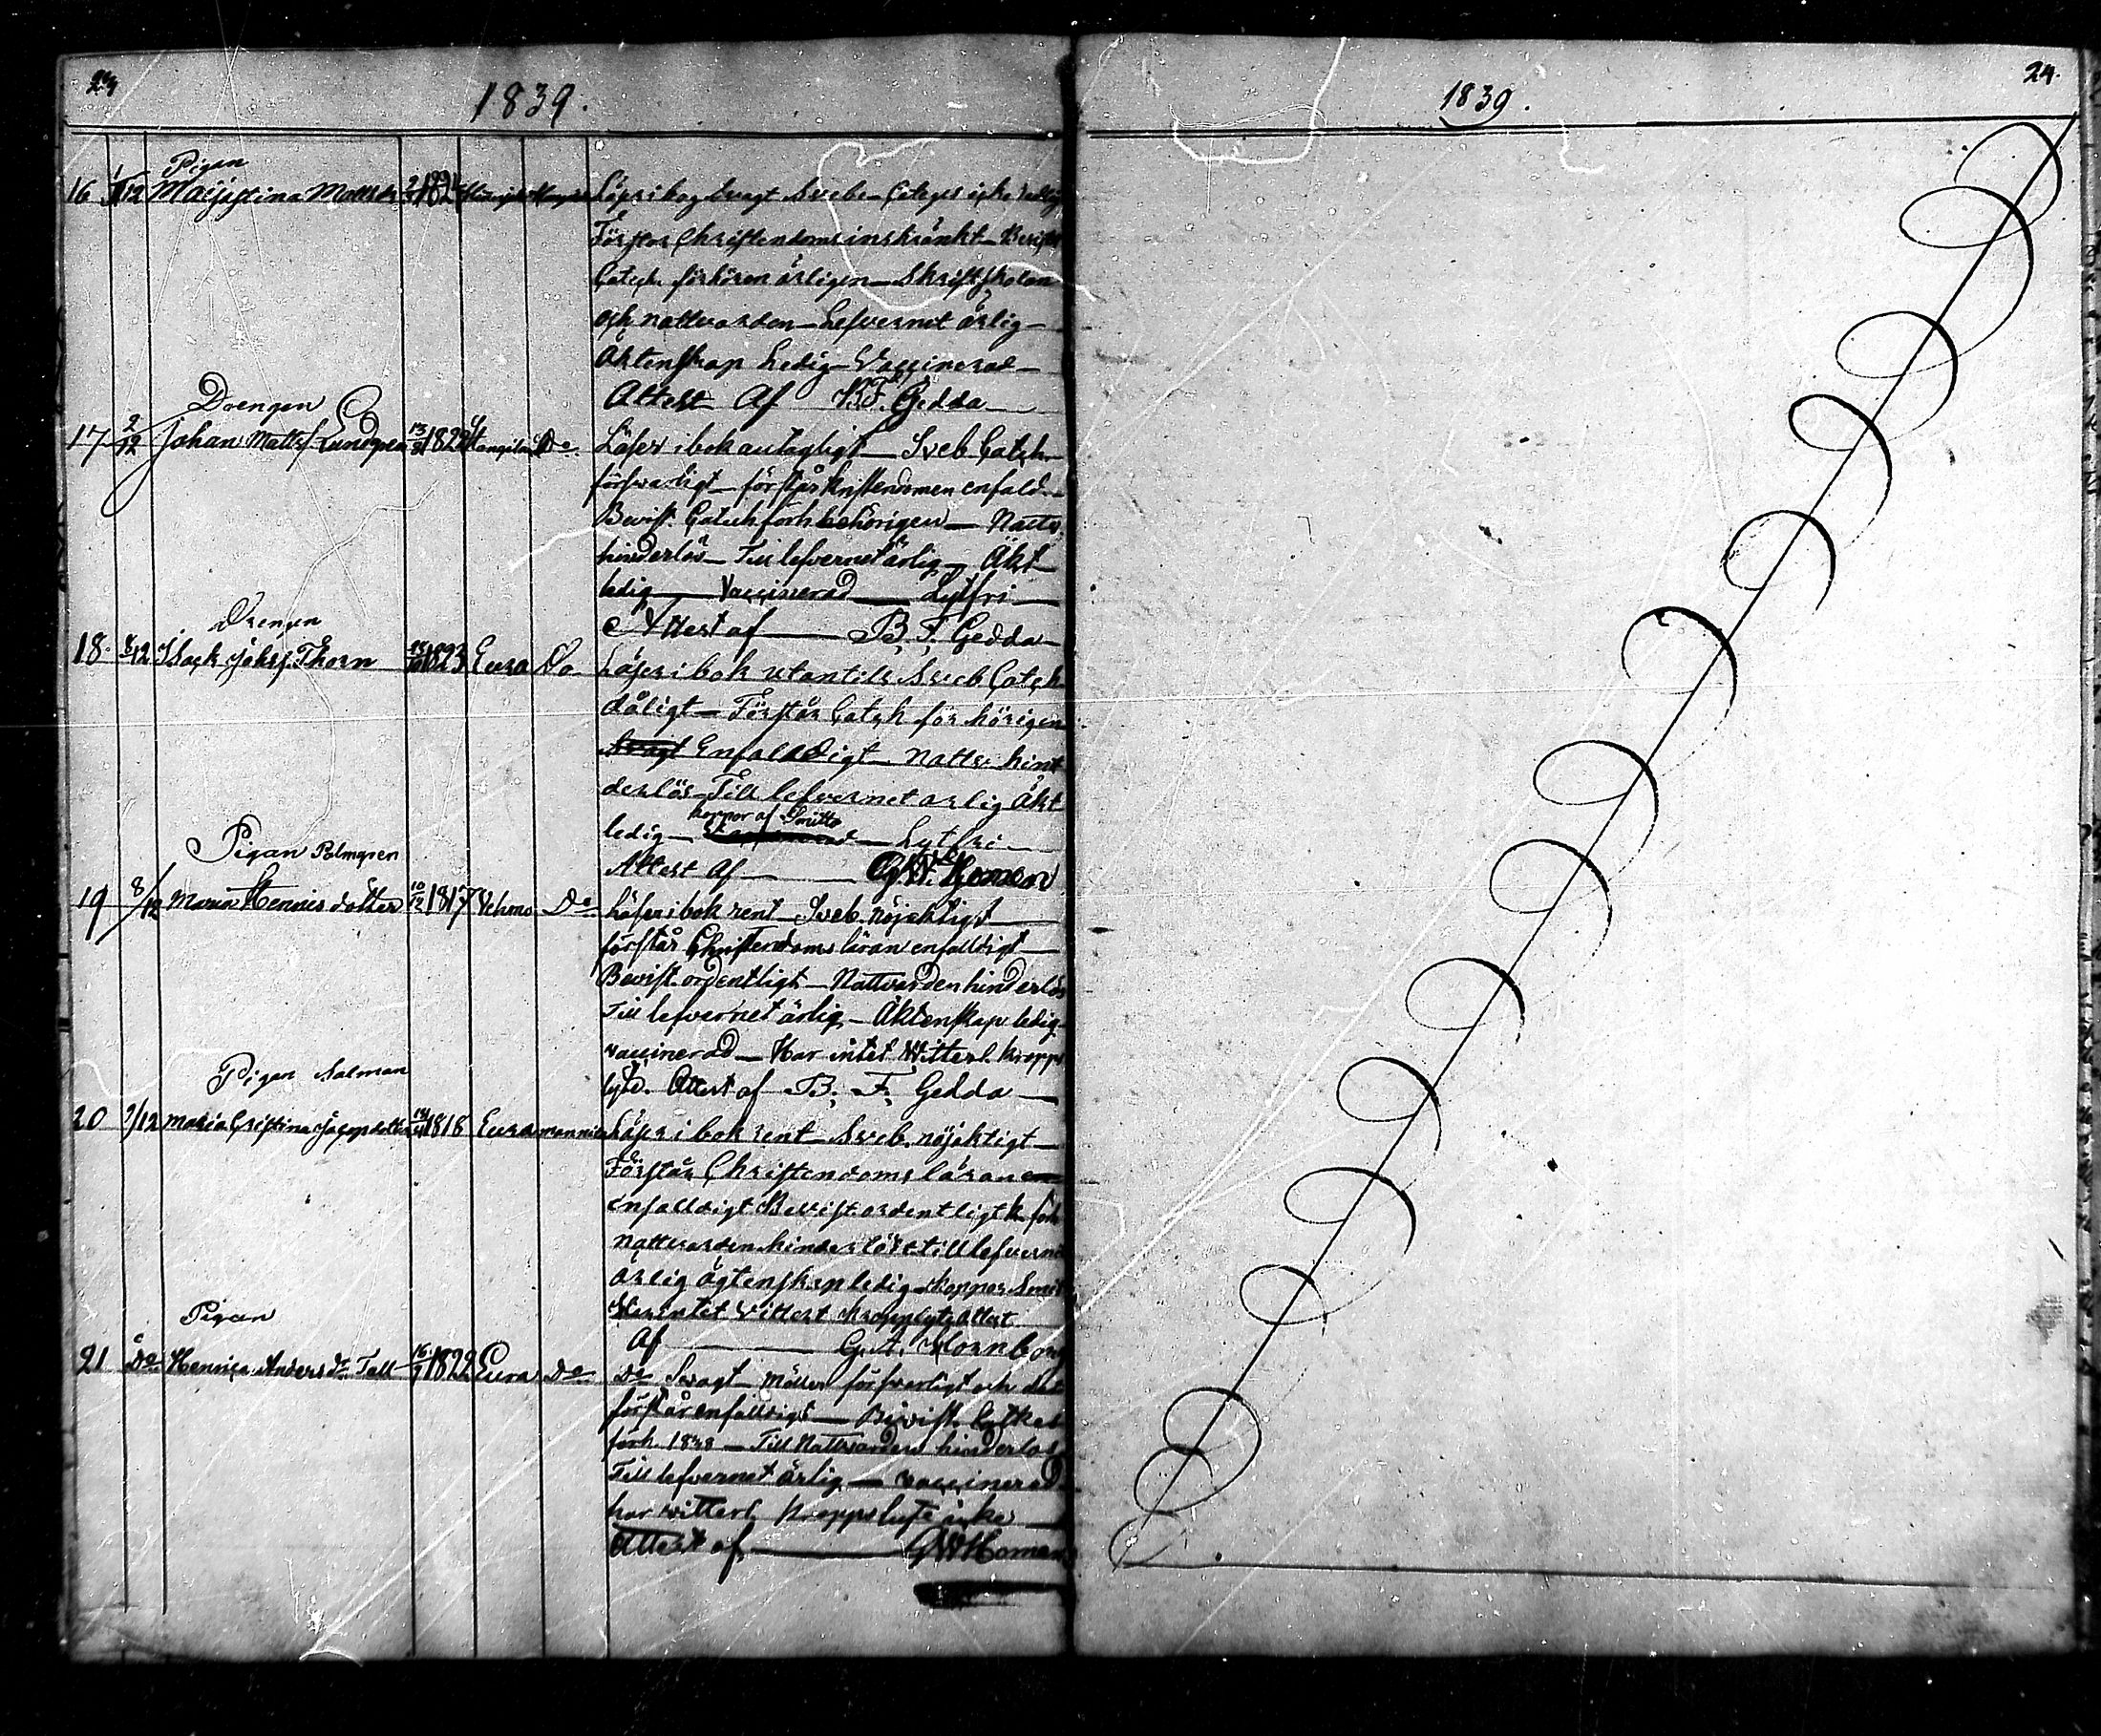 1839.
Pigan
16 1/12 Majastina Matts dr 1824 Läser i bog svagt Sveb. Categes icke
Förstor Christendoms inskränkt Bevist
Catech förhören årligen Skriftskolan
och nattvarden Lefvernet ärlig
Äktenskap Ledig Vaccinerad
Attest Af B.F. Gedda
Drengen
17 2/12 Johan Matts f Lundgren 1822 Do Läser i bok antagligt Sveb Catch
försvarligt förstår kristendomen enfald
Bevist. Catech förh behörigen Nattv.
hinderlös Till lefvernet ärlig Äkt
ledig Vaccinerad Lytfri
Attest af B. F. Gedda
Drengen
18. /12 Isack Johs f. Thorn 1823 Eura Do Läser i bok utantill Sveb Catch
dåligt Förstår Catch för hörigen
Svagt Enfalldigt Nattv hin
derlös Till lefvernet ärlig Äkt
koppor af Smitta
ledig Vaccinerad Lytfri
Attest Af GW Homen
Pigan Palmgren
19 8/12 Maria Hennics dotter 10/12 1817 Vehmo Do Läser i bok rent Sveb. nöjaktigt
förstår Christendoms läran enfalldigt
Bevist ordentligt Nattvarden hinderlös
Till lefvernet ärlig Äktenskap ledig
vaccinerad Har intet Witterl. kropps
lyte. Attest af B. F. Gedda
Pigan Salman
20 9/12 Maria Cristina Jacops dotter 1818 Eura Läser i bok rent Sveb. nöjaktigt
Förstår Christendoms läran en
enfalldigt Bevist ordentligt k förh
nattvarden hinderlöst till lefverne
ärlig ägtenskap ledig koppor Smit
Har intet Vittert kropplyte Attest
Af G. A. Hornborg
Pigan
21 Do Henrica Anders dr Tall 16/9 1822 Eura Do Do Svagt Möller försvarligt och det
förstår enfalldigt Bevist.
förh. 1838 Till Nattvarden hinderlös
Till lefvernet ärlig vaccinerad
har witterl. kropps lyte icke
Attest af GW Homen
1839.
24.